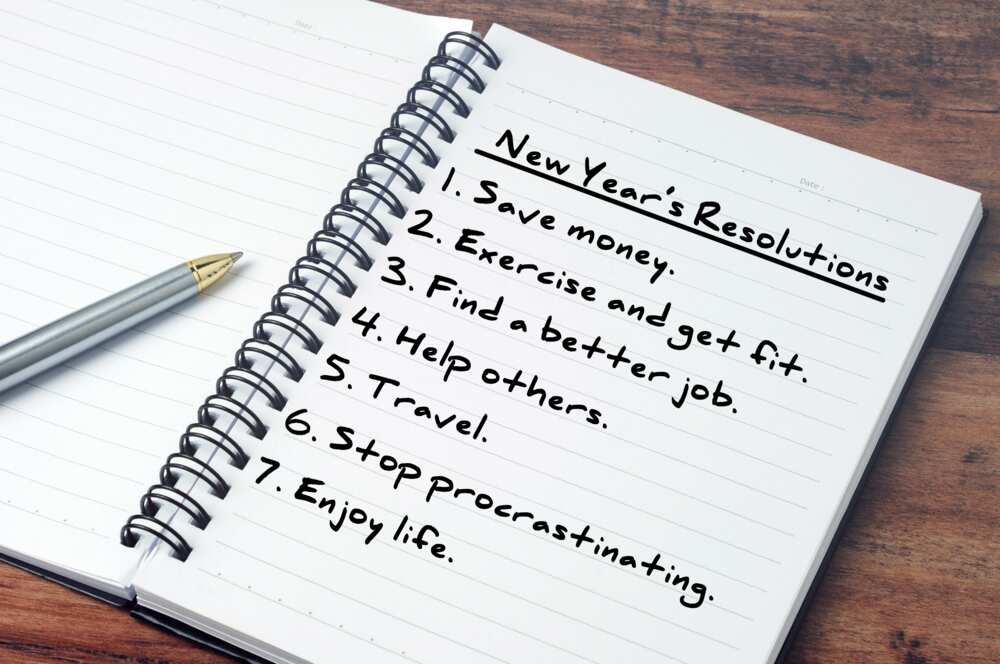 Date :
Date :
New Year's Resolutions
1. Save money.
2. Exercise and get fit.
3. Find a better job.
4. Help others.
5. Travel.
6. Stop procrastinating.
7. Enjoy life.